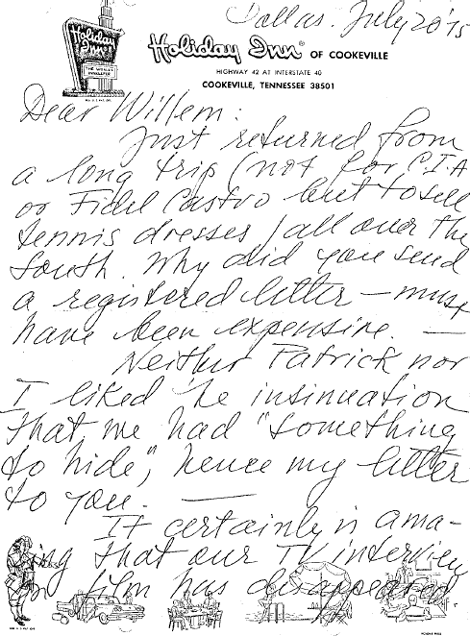 Dallas. July 20 '75
Holiday Inn® OF COOKEVILLE
HIGHWAY 42 AT INTERSTATE 40
COOKEVILLE, TENNESSEE 38501
Dear Willem:
Just returned from
a long trip (not for C.I.A
or Fidel Castro but to sell
tennis dresses) all over the
South. Why did you send
a registered letter — must
have been expensive. —
Neither Patrick nor
I liked the insinuation
that we had "something
to hide", hence my letter
to you. —
It certainly is ama-
ing that our TV interview
film has disappeared